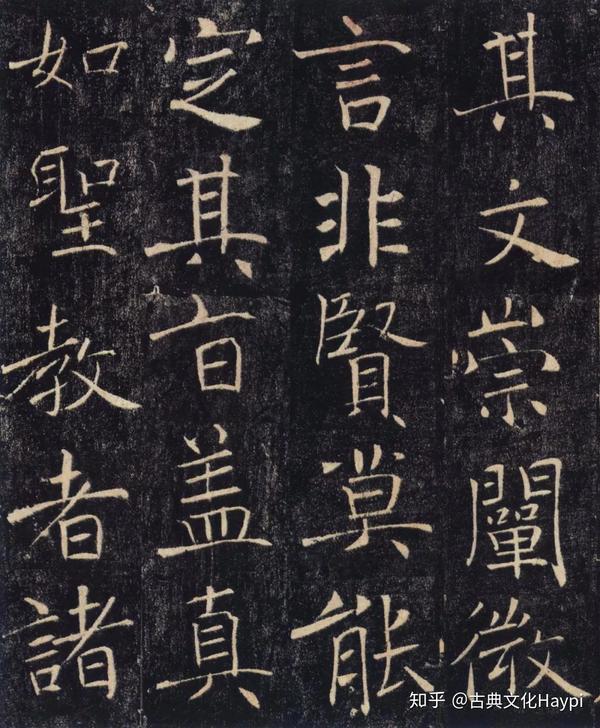 其文崇闡微
言非賢莫能
定其旨盖真
如聖教者諸
知乎 @古典文化Haypi